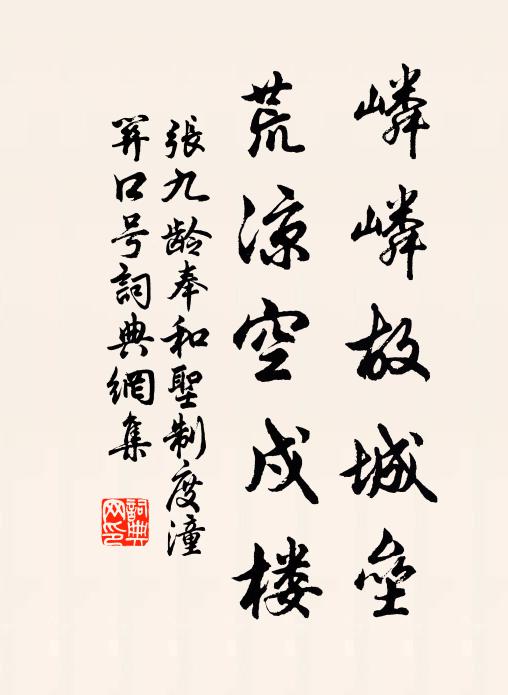 嶙嶙故城垒
荒凉空戍楼
張九龄奉和聖制度潼
関口号詞典網集
詞典网印